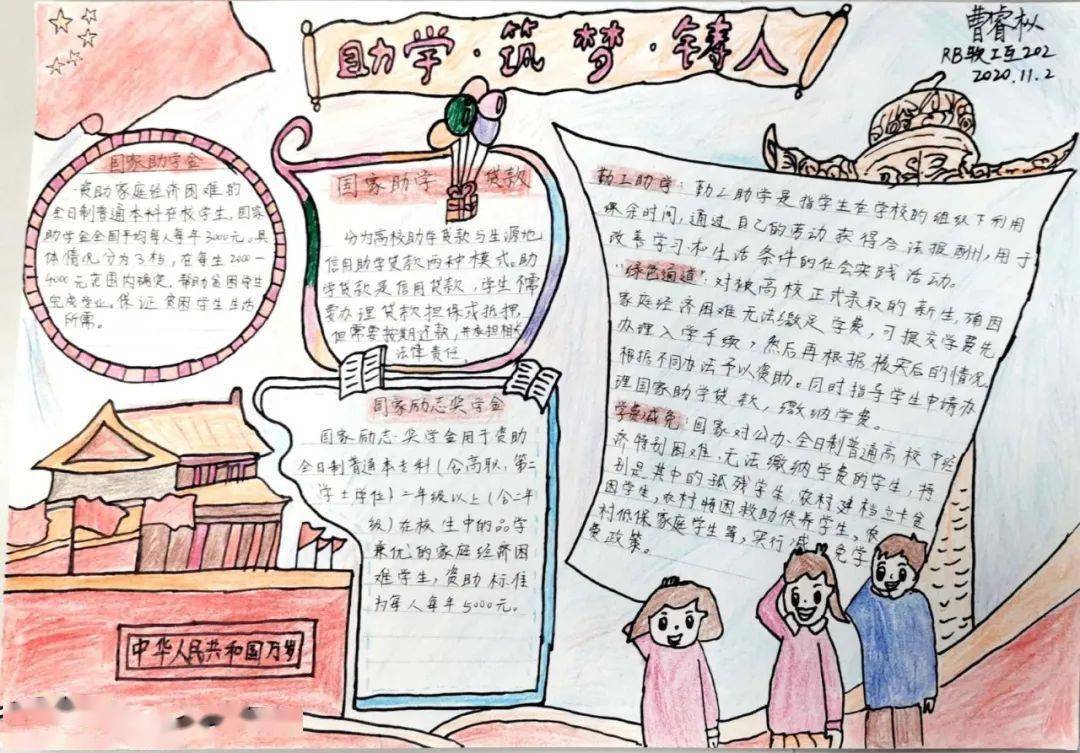 助学·筑梦·铸人
曹睿
RB软工互202
2020.11.2
国家助学金
资助家庭经济困难的
全日制普通本科在校学生,国家
助学金全国平均每人每年3000元。具
体情况分为3档,在每生2000—
4000元范围内确定,帮助贫困学生
完成学业,保证贫困学生生活
所需。
国家助学贷款
分为高校助学贷款与生源地
信用助学贷款两种模式。助
学贷款是信用贷款,学生
要办理贷款担保或抵押,
但需要按期还款,并承担相关
法律责任。
国家励志奖学金
国家励志·奖学金用于资助
全日制普通本专科(含高职、第二
学士学位)二年级以上(含二年
级)在校生中的品学
兼优的家庭经济困
难学生,资助标准
为每人每年5000元。
勤工助学:勤工助学是指学生在学校的组织下利用
课余时间,通过自己的劳动获得合法报酬,用于
改善学习和生活条件的社会实践活动。
"绿色通道":对被高校正式录取的新生,确因
家庭经济困难无法缴足学费,可提交学费先
办理入学手续,然后再根据核实后的情况。
根据不同办法予以资助。同时指导学生申请办
理国家助学贷款,缴纳学费。
学费减免:国家对公办、全日制普通高校中经
济特别困难、无法缴纳学费的学生,特
别是其中的孤残学生、农村建档立卡贫
困学生,农村特困救助供养学生、农
村低保家庭学生等,实行减免学
费政策。
中华人民共和国万岁